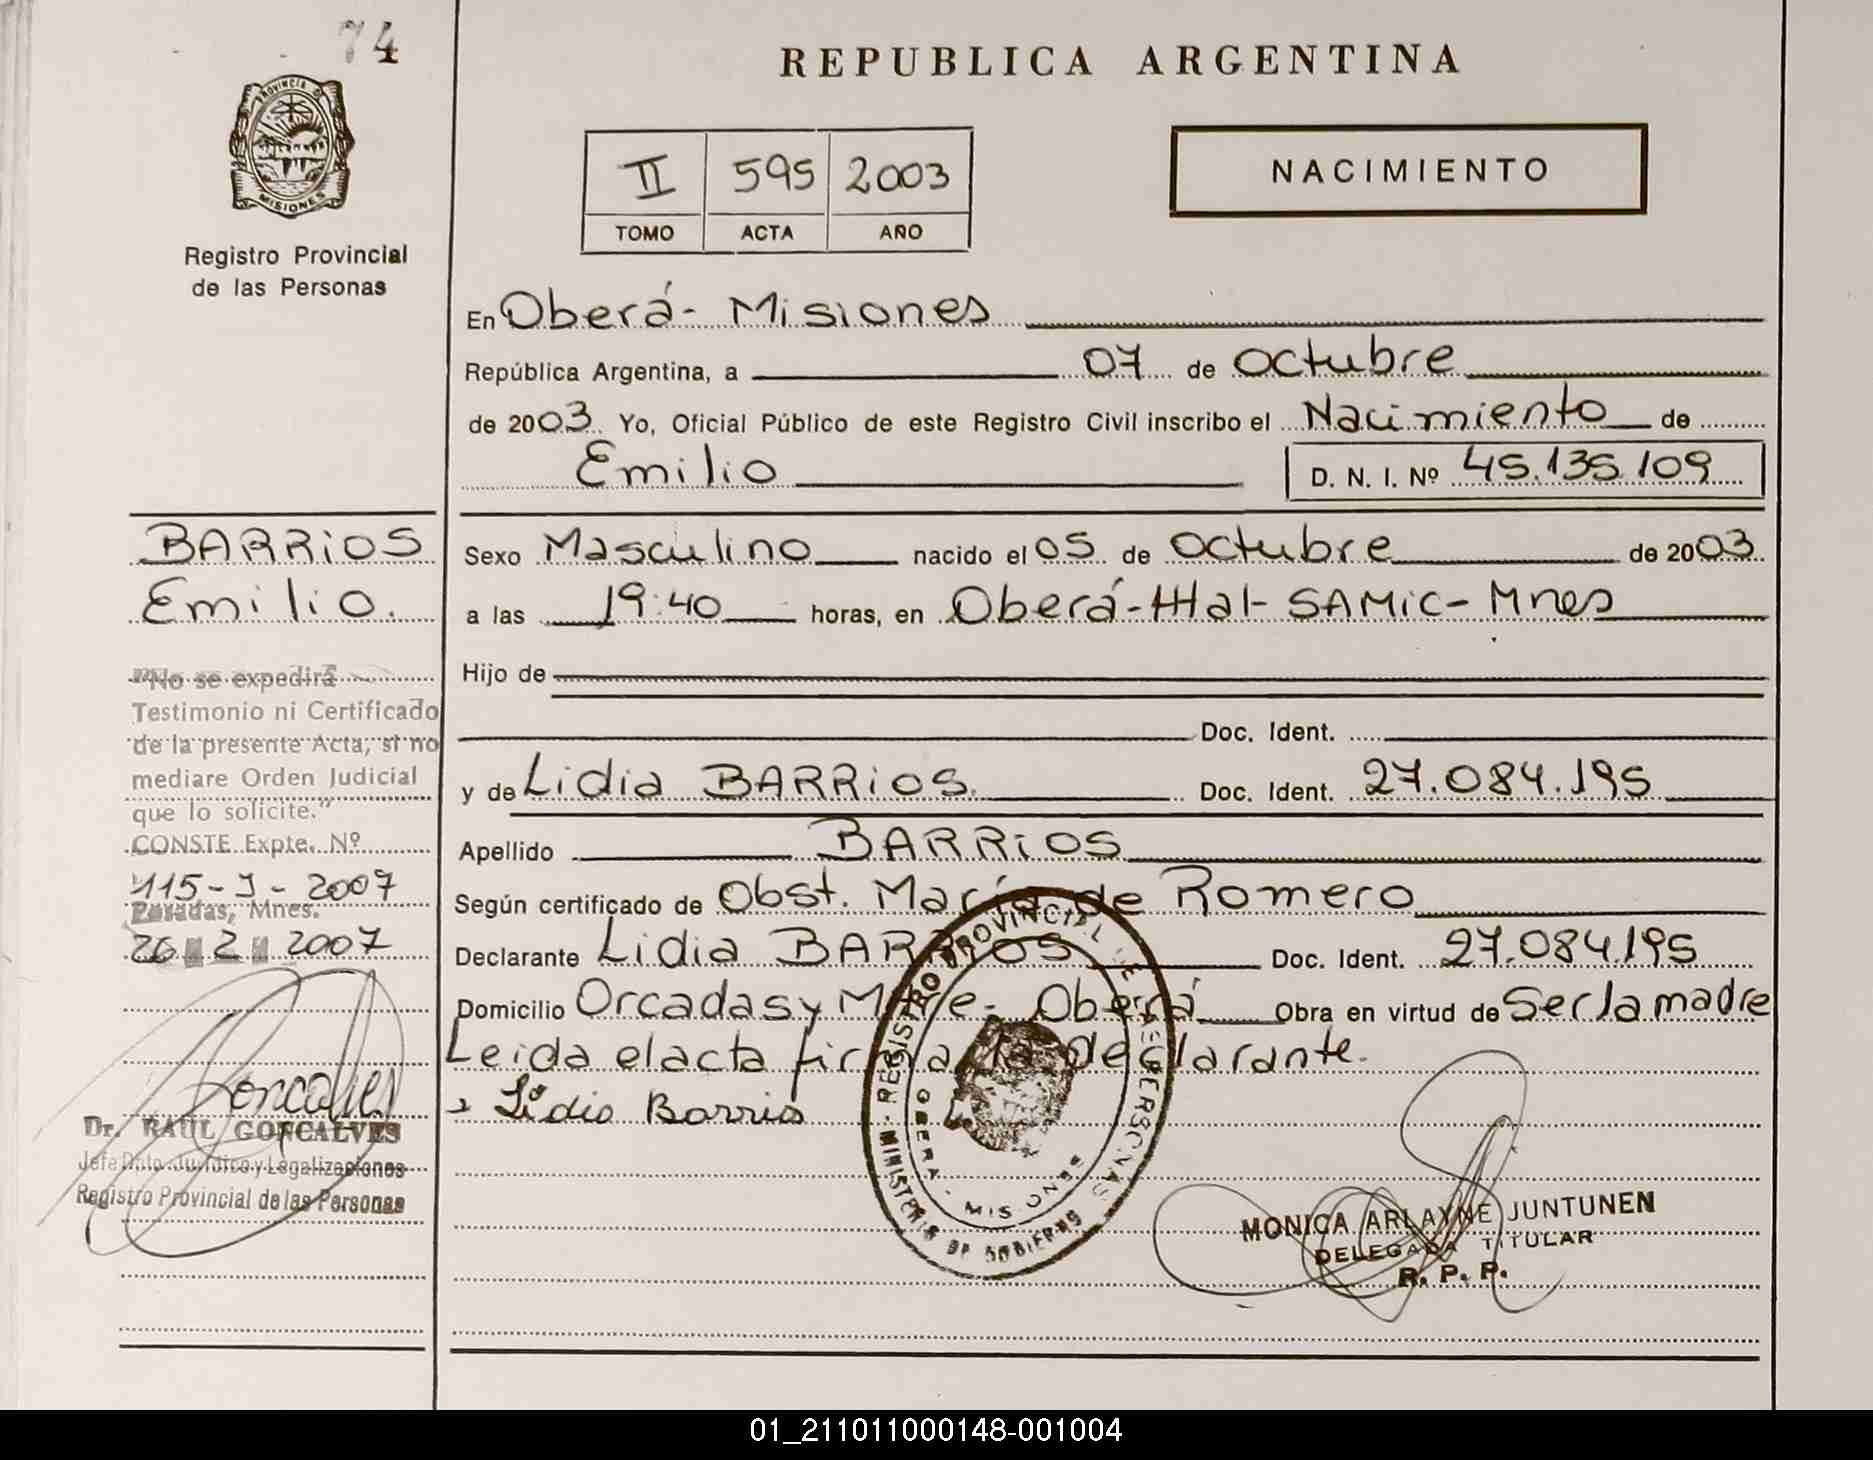 74
PROVINCIA DE
MISIONES
Registro Provincial
de las Personas
REPUBLICA ARGENTINA
II 595 2003
TOMO ACTA AÑO
NACIMIENTO
En Oberá - Misiones
República Argentina, a 07 de Octubre
de 2003 Yo, Oficial Público de este Registro Civil inscribo el Nacimiento de
Emilio D. N. I. Nº 45.135.109
BARRIOS
Emilio.
"No se expedirá
Testimonio ni Certificado
de la presente Acta, si no
mediare Orden Judicial
que lo solicite."
CONSTE Expte. Nº
115-J-2007
Posadas, Mnes.
26 2 2007
Goncalves
Dr. RAUL GONCALVES
Jefe Dpto. Jurídico y Legalizaciones
Registro Provincial de las Personas
Sexo Masculino nacido el 05 de Octubre de 2003
a las 19:40 horas, en Oberá - Htal - SAMIC - Mnes
Hijo de
Doc. Ident.
y de Lidia BARRIOS. Doc. Ident. 27.084.195
Apellido BARRIOS
Según certificado de Obst. María de Romero
Declarante Lidia BARRIOS Doc. Ident. 27.084.195
Domicilio Orcadas y - Oberá Obra en virtud de Ser la madre
Leida el acta firma la declarante.
Lidia Barrios
REGISTRO PROVINCIAL DE LAS PERSONAS
MINISTERIO DE GOBIERNO
OBERA - MISIONES
MONICA ARLAYNE JUNTUNEN
DELEGADA TITULAR
R. P. P.
01_211011000148-001004